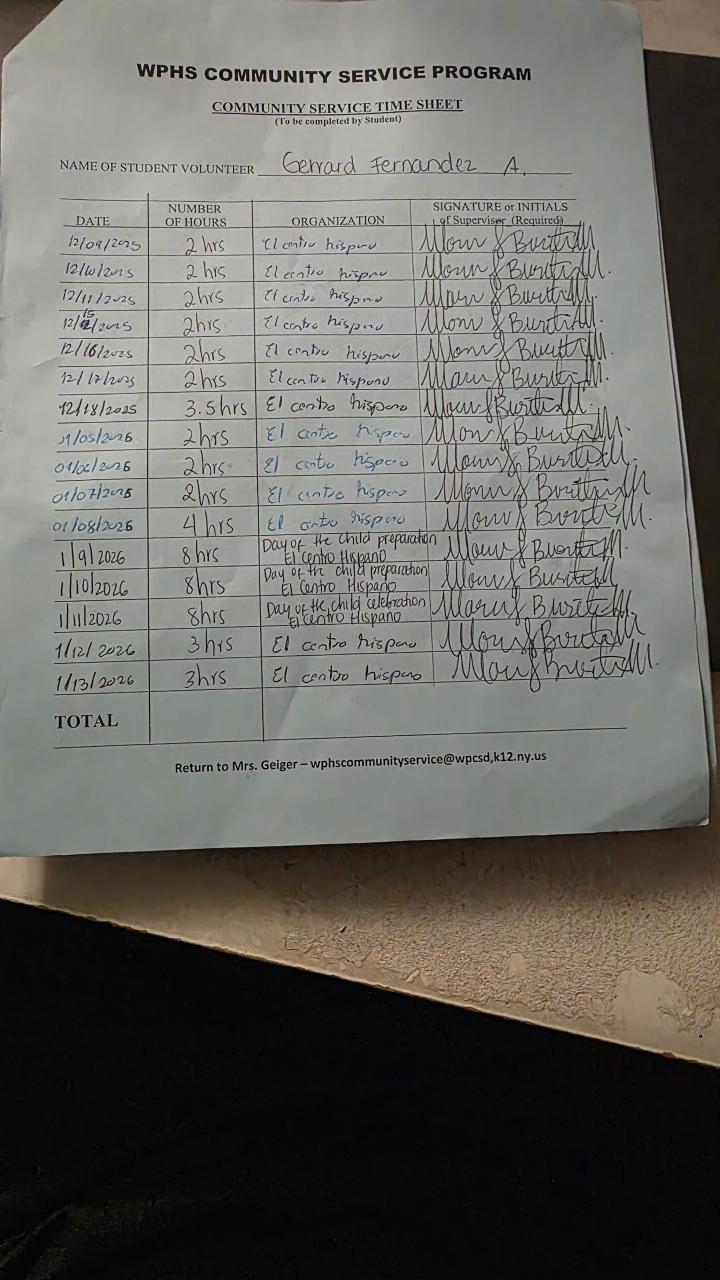 WPHS COMMUNITY SERVICE PROGRAM
COMMUNITY SERVICE TIME SHEET
(To be completed by Student)
NAME OF STUDENT VOLUNTEER Gerrard Fernandez A.
DATE NUMBER OF HOURS ORGANIZATION SIGNATURE or INITIALS of Supervisor (Required)
12/09/2025 2 hrs El centro hispano
12/10/2025 2 hrs El centro hispano
12/11/2025 2hrs El centro hispano
12/15/2025 2hrs El centro hispano
12/16/2025 2hrs El centro hispano
12/17/2025 2hrs El centro hispano
12/18/2025 3.5hrs El centro hispano
01/05/2026 2hrs El centro hispano
01/06/2026 2hrs El centro hispano
01/07/2026 2hrs El centro hispano
01/08/2026 4 hrs El centro hispano
1/9/2026 8hrs Day of the child preparation El Centro Hispano
1/10/2026 8hrs Day of the child preparation El Centro Hispano
1/11/2026 8hrs Day of the child celebration El Centro Hispano
1/12/2026 3hrs El centro hispano
1/13/2026 3hrs El centro hispano
TOTAL
Return to Mrs. Geiger – wphscommunityservice@wpcsd,k12.ny.us